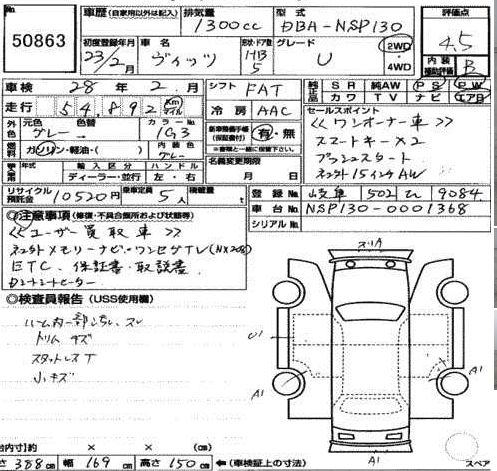 No.
50863
車歴 (自家用以外は記入)
排気量 1300cc
型式 DBA-NSP130
評価点 4.5
初度登録年月 23/2月
車名 ヴィッツ
形状・ドア数 HB 5
グレード U
2WD・4WD
内装補助評価 B
車検 28年2月
シフト FAT
純正品 SR 純AW PS PW
カワ TV ナビ エアB
走行 54,892 Km マイル
冷房 AAC
セールスポイント
外色 元色 グレー→ 色替
カラーNo. 1G3
新車整備手帳(保証書付) 有・無
≪ワンオーナー車≫
燃料 ガソリン・軽油・( )
内装色 グレー
名義変更期限 月 日
スマートキー×2
プッシュスタート
年式 輸入区分 ディーラー・並行
ハンドル 左・右
社外15インチAW
リサイクル預託金 10520円
乗車定員 5人
積載量 t
登録No. 岐阜 502 9084
車台No. NSP130-0001368
シリアルNo.
◎注意事項 (修復・不具合箇所および状態等)
≪ユーザー買取車≫
社外メモリーナビ・ワンセグTV(NX208)
ETC、保証書・取説書
◎検査員報告 (USS使用欄)
ハーム内一部
トリム キズ
スタットレスT
小キズ
スリA
U1
A1
A1
A1
スペア
台内寸)約 × × (cm)
さ 388cm 幅 169cm 高さ 150cm ←(車検証上の寸法)